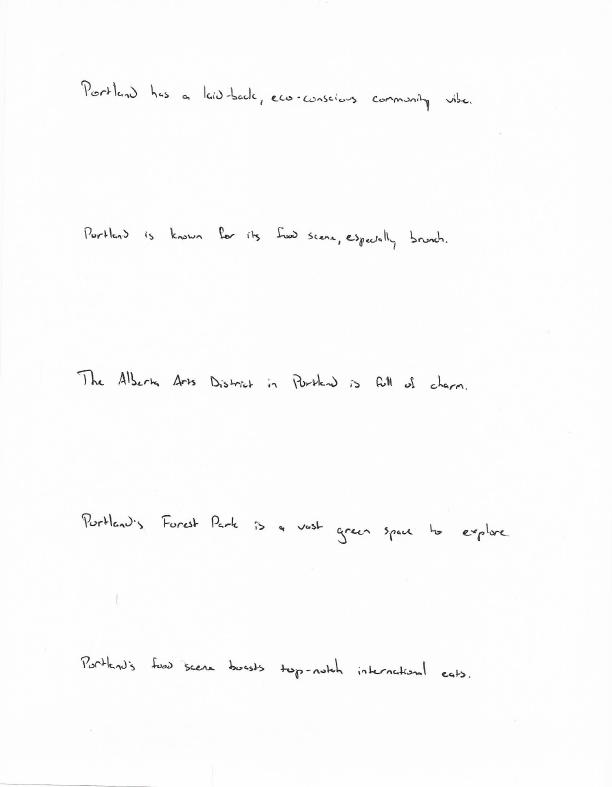 Portland has a laid-back, eco-conscious community vibe.
Portland is known for its food scene, especially brunch.
The Alberta Arts District in Portland is full of charm.
Portland's Forest Park is a vast green space to explore
Portland's food scene boasts top-notch international eats.